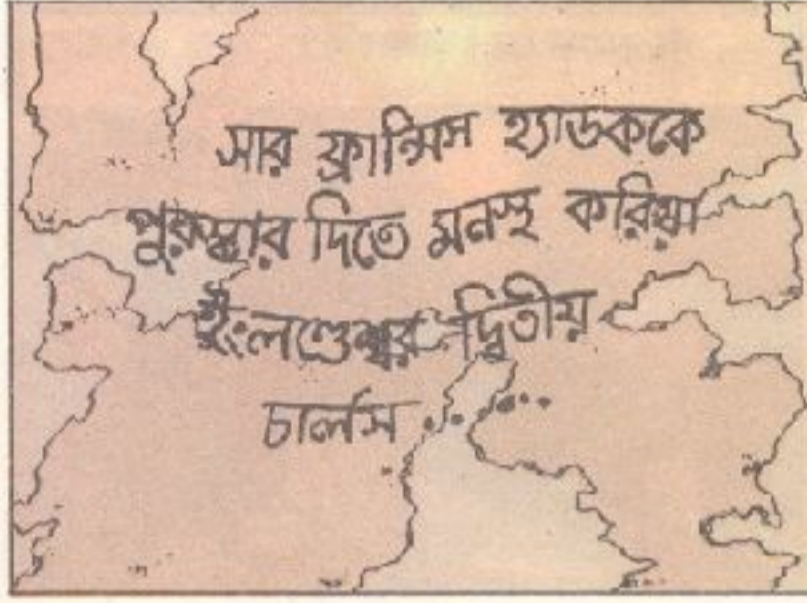 সার ফ্রান্সিস হ্যাডককে
পুরস্কার দিতে মনস্থ করিয়া
ইংলণ্ডেশ্বর দ্বিতীয়
চার্লস . . . . . .